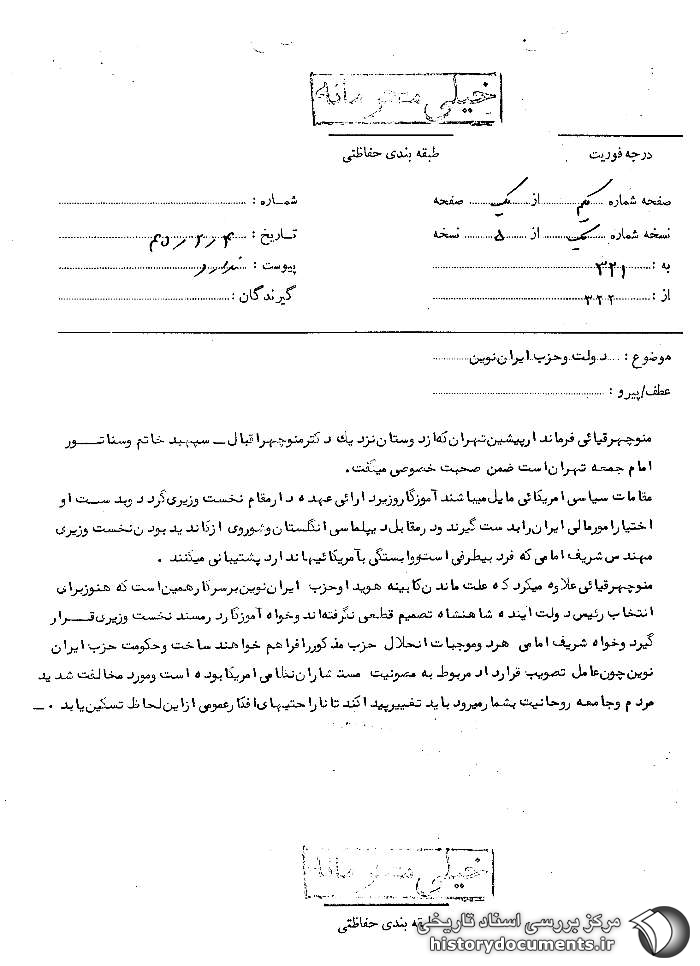 خیلی محرمانه
طبقه بندی حفاظتی
درجه فوریت
صفحه شماره یکم از یک صفحه
شماره :
نسخه شماره یک از ۵ نسخه
تاریخ : ۴۵/۲/۴
به : ۳۲۱
پیوست : ندارد
از : ۳۲۲
گیرندگان :
موضوع : دولت وحزب ایران نوین
عطف/پیرو :
منوچهرقیائی فرماندارپیشین تهران که از دوستان نزدیك دکترمنوچهراقبال ــ سپهبد خاتم وسناتور
امام جمعه تهران است ضمن صحبت خصوصی میگفت.
مقامات سیاسی امریکائی مایل میباشند آموزگاروزیردارائی عهده دارمقام نخست وزیری گردد وبدست او
اختیارامورمالی ایران رابدست گیرند ودرمقابل دیپلماسی انگلستان وشوروی ازکاندید بودن نخست وزیری
مهندس شریف امامی که فرد بیطرفی است ووابستگی بآمریکائیها ندارد پشتیبانی میکنند .
منوچهرقیائی علاوه میکرد که علت ماندن کابینه هویدا وحزب ایران نوین برسرکارهمین است که هنوزبرای
انتخاب رئیس دولت آینده شاهنشاه تصمیم قطعی نگرفته اند وخواه آموزگاردرمسند نخست وزیری قرار
گیرد وخواه شریف امامی هردوموجبات انحلال حزب مذکوررافراهم خواهند ساخت وحکومت حزب ایران
نوین چون عامل تصویب قرارداد مربوط به مصونیت مستشاران نظامی امریکا بوده است ومورد مخالفت شدید
مردم وجامعه روحانیت بشمارمیرود باید تغییرپیدا کند تا ناراحتیهای افکارعمومی ازاین لحاظ تسکین یابد ۰ــ
خیلی محرمانه
طبقه بندی حفاظتی
مرکز بررسی اسناد تاریخی
historydocuments.ir